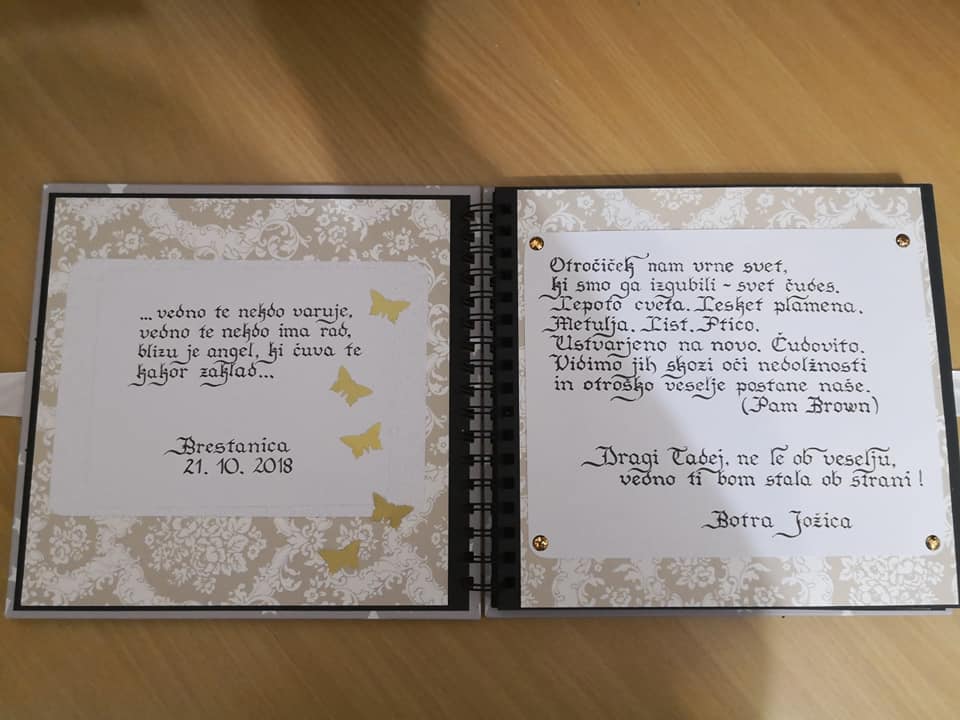 ... vedno te nekdo varuje,
vedno te nekdo ima rad,
blizu je angel, ki čuva te
kakor zaklad...
Brestanica
21. 10. 2018
Otročiček nam vrne svet,
ki smo ga izgubili - svet čudes.
Lepoto cveta. Lesket plamena.
Metulja. List. Ptico.
Ustvarjeno na novo. Čudovito.
Vidimo jih skozi oči nedolžnosti
in otroško veselje postane naše.
(Pam Brown)
Dragi Tadej, ne le ob veselju,
vedno ti bom stala ob strani!
Botra Jožica